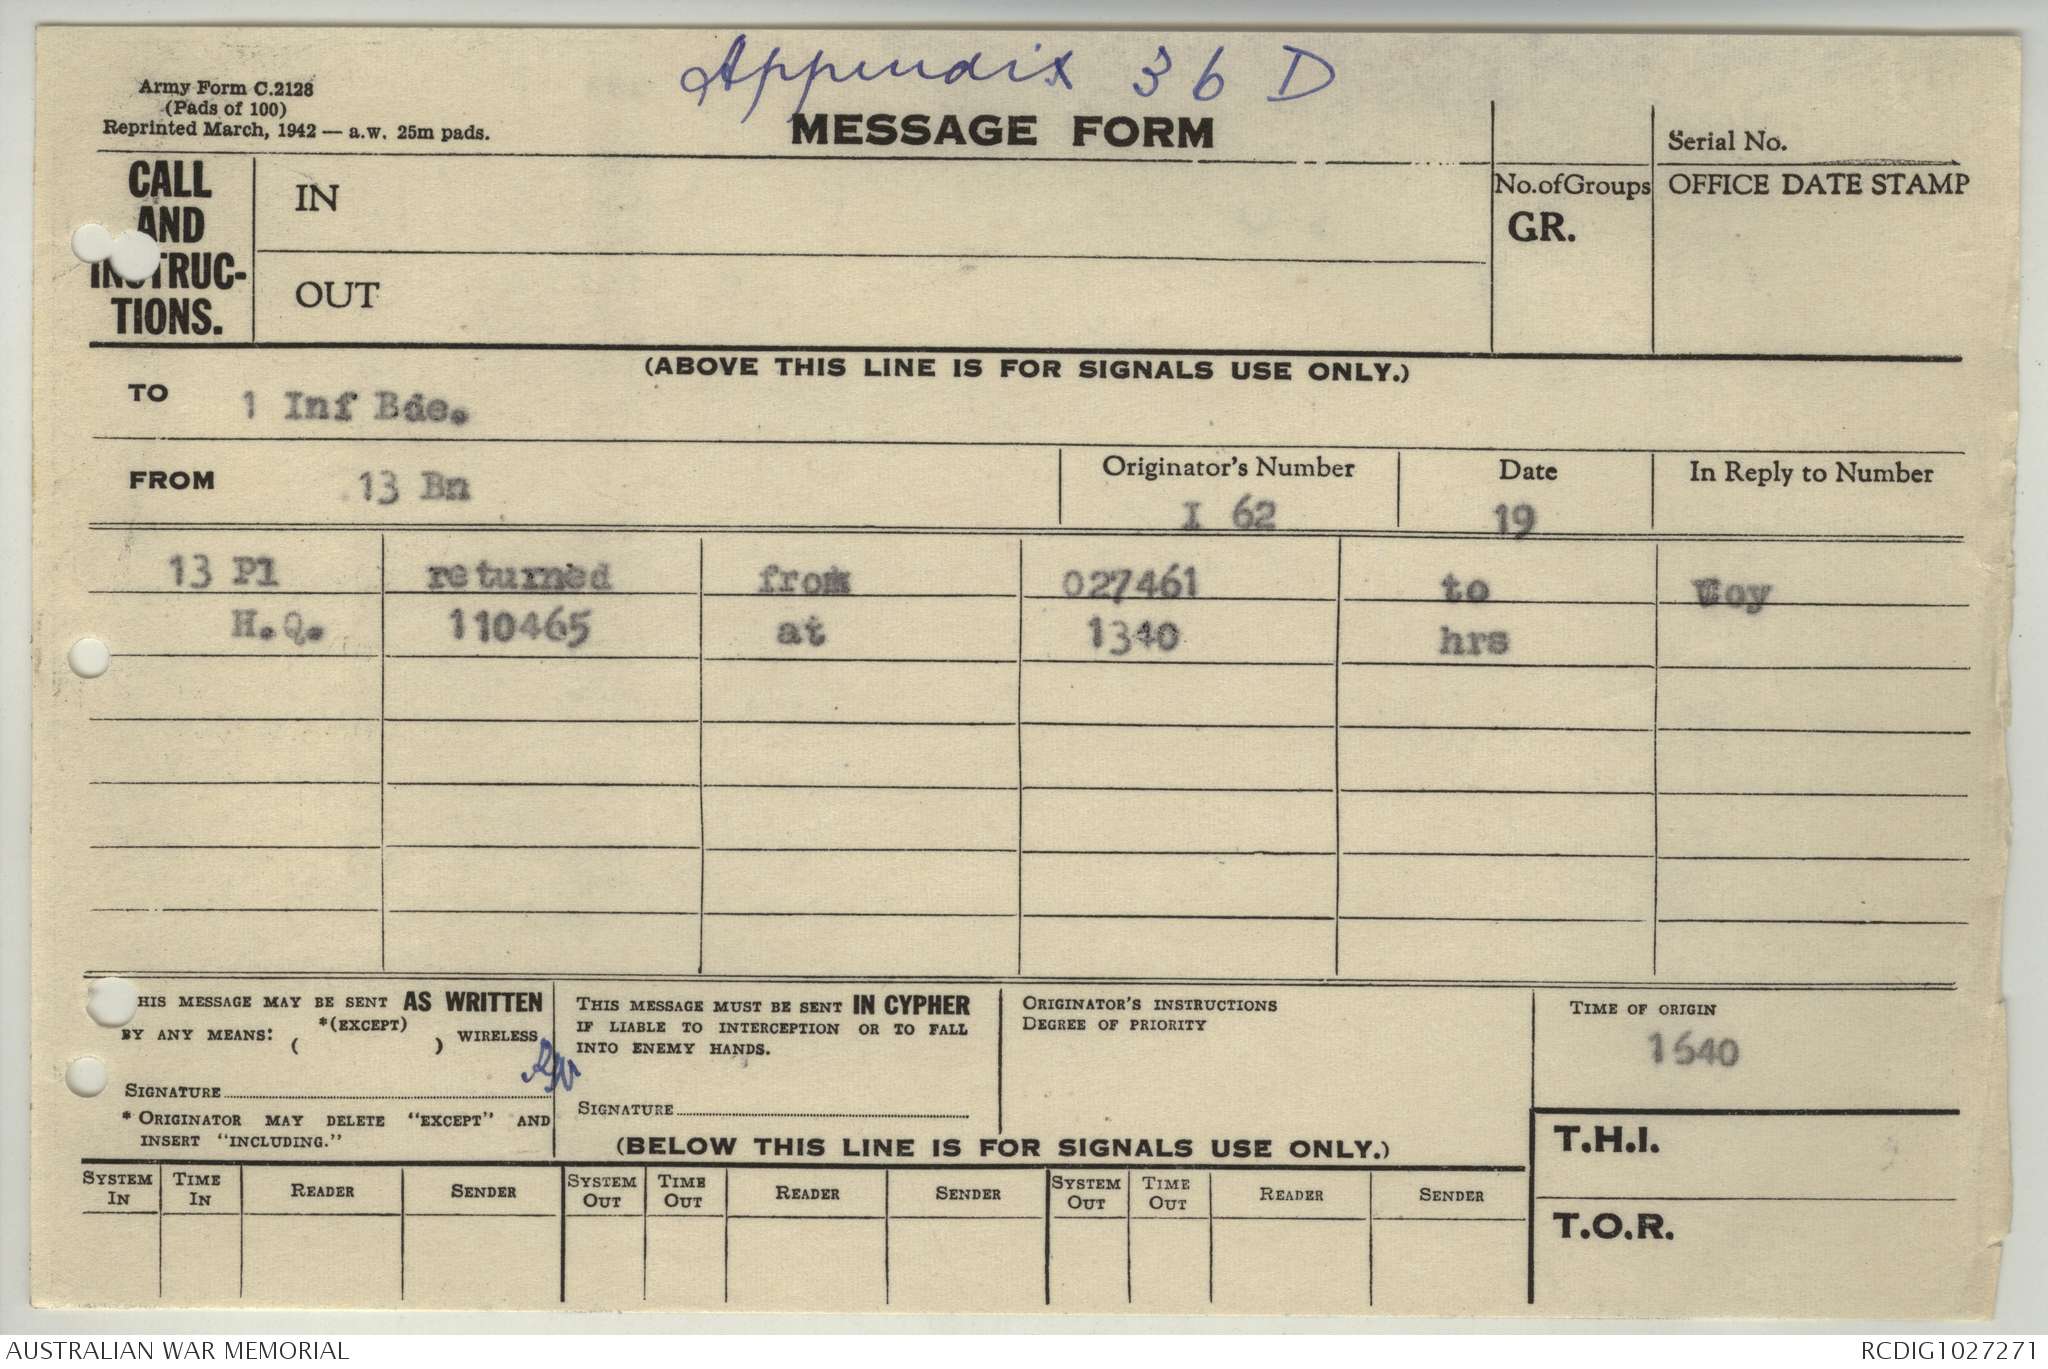 Appendix 36 D
Army Form C.2128
(Pads of 100)
Reprinted March, 1942 — a.w. 25m pads.
MESSAGE FORM
Serial No.
CALL
AND
INSTRUC-
TIONS.
IN
OUT
No.ofGroups
GR.
OFFICE DATE STAMP
(ABOVE THIS LINE IS FOR SIGNALS USE ONLY.)
TO 1 Inf Bde.
FROM 13 Bn
Originator's Number
I 62
Date
19
In Reply to Number
13 Pl returned from 027461 to Coy
H.Q. 110465 at 1340 hrs
THIS MESSAGE MAY BE SENT AS WRITTEN
BY ANY MEANS: ( *(EXCEPT) ) WIRELESS
SIGNATURE
* ORIGINATOR MAY DELETE "EXCEPT" AND
INSERT "INCLUDING."
THIS MESSAGE MUST BE SENT IN CYPHER
IF LIABLE TO INTERCEPTION OR TO FALL
INTO ENEMY HANDS.
SIGNATURE
ORIGINATOR'S INSTRUCTIONS
DEGREE OF PRIORITY
TIME OF ORIGIN
1640
(BELOW THIS LINE IS FOR SIGNALS USE ONLY.)
T.H.I.
T.O.R.
SYSTEM IN TIME IN READER SENDER SYSTEM OUT TIME OUT READER SENDER SYSTEM OUT TIME OUT READER SENDER
AUSTRALIAN WAR MEMORIAL RCDIG1027271